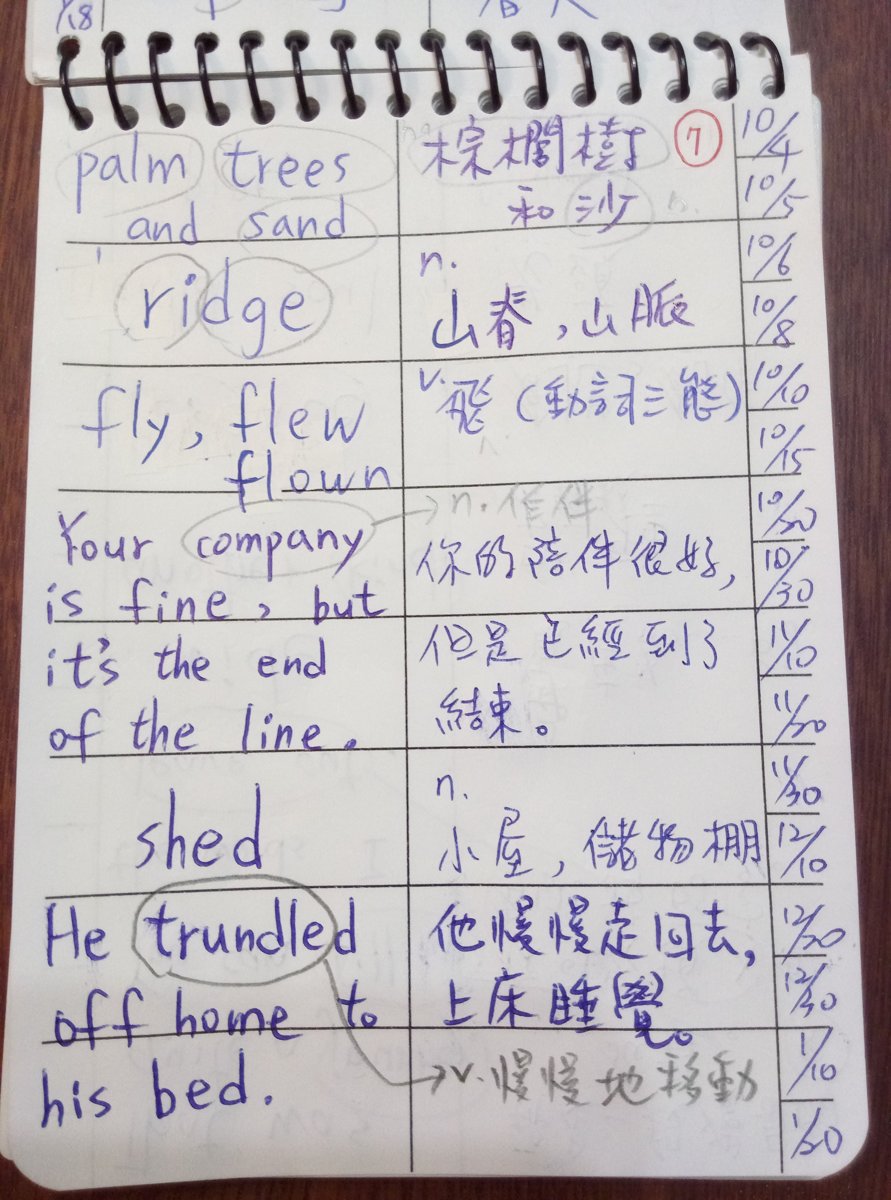 1/18
palm trees
and sand
棕櫚樹
和沙
7
10/4
10/5
ridge
n.
山脊，山脈
10/6
10/8
fly, flew
flown
v. 飛 (動詞三態)
10/10
10/15
Your company
is fine, but
it's the end
of the line.
→n.
你的陪伴很好,
但是已經到了
結束。
10/20
10/30
11/10
11/20
shed
n.
小屋, 儲物棚
11/30
12/10
He trundled
off home to
his bed.
他慢慢走回去,
上床睡覺。
→v. 慢慢地移動
12/20
12/30
1/10
1/20